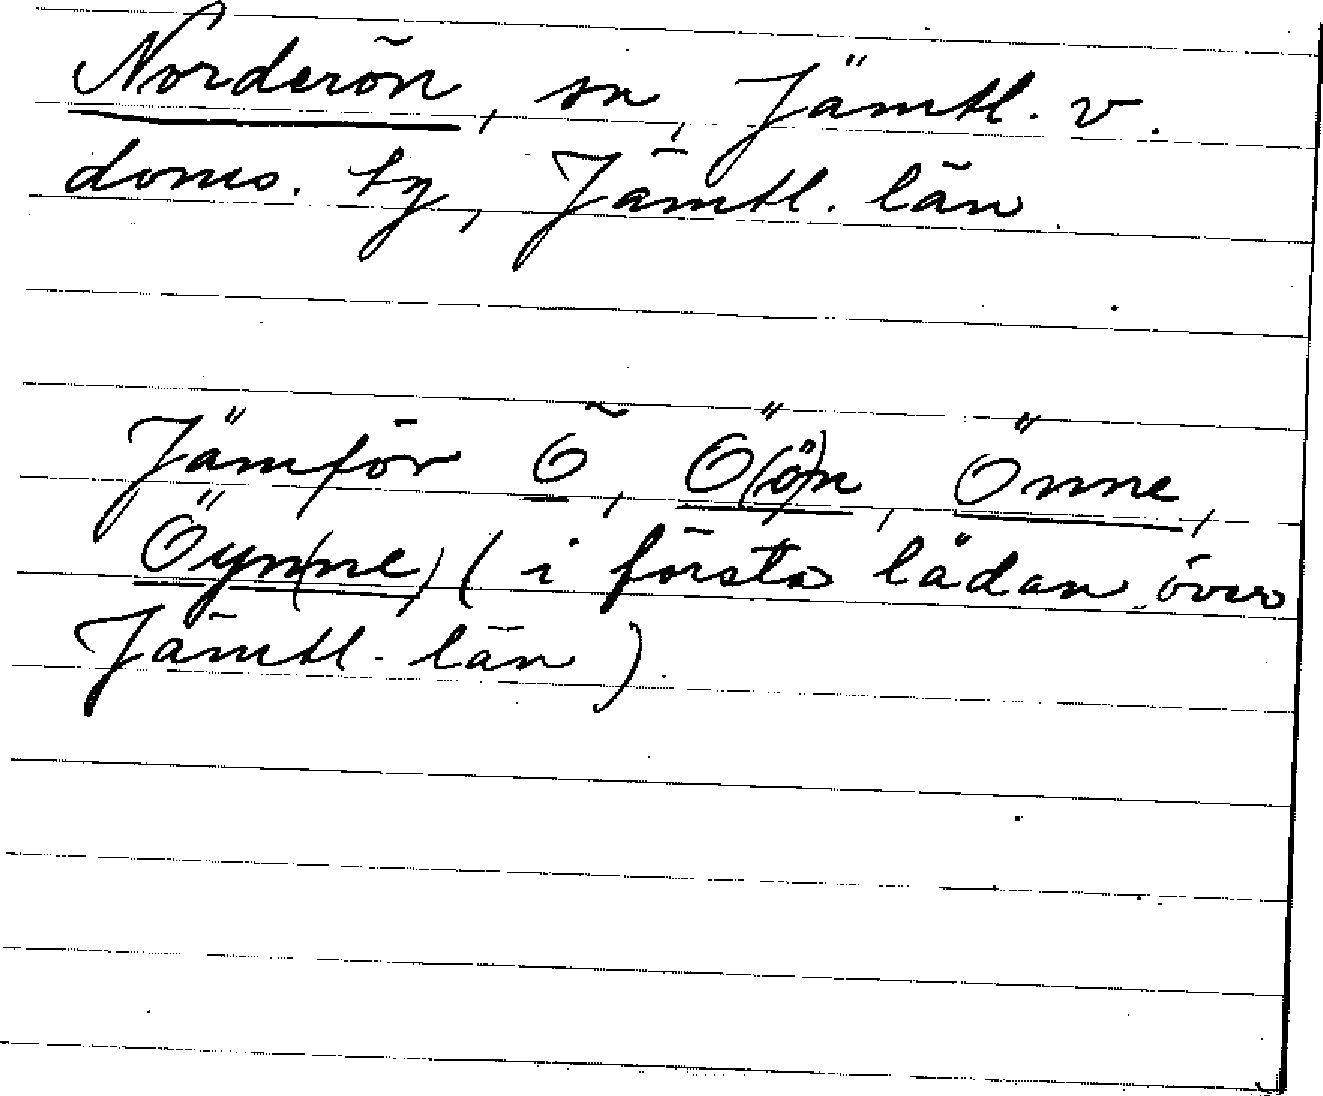 Norderön, sn, Jämtl. v.
doms. by, Jämtl. län
Jämför Ö, Ö(ö)n, Önne,
Öyn(ne) (i första lådan över
Jämtl. län)